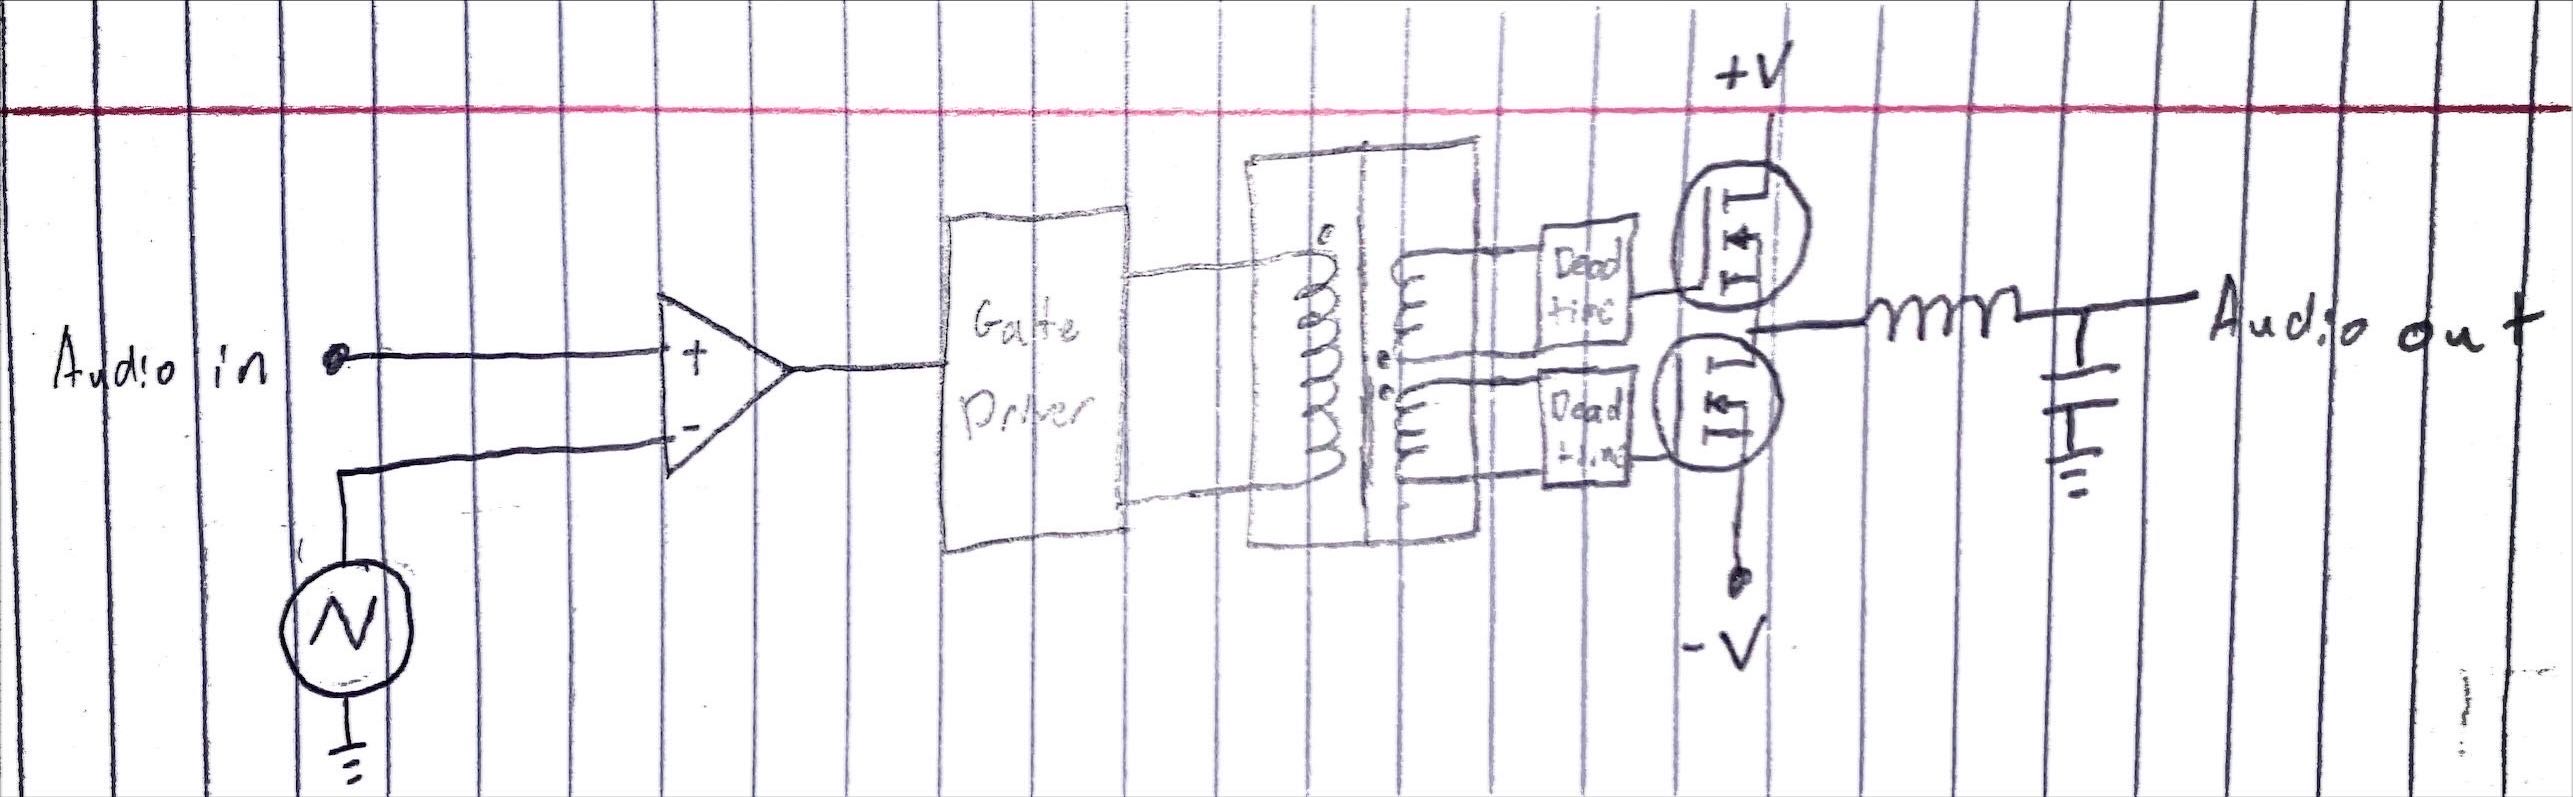 +V
Audio in
+
-
Gate
Driver
Dead
time
Dead
time
Audio out
-V